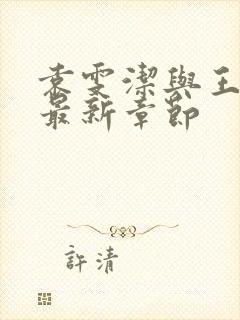 袁雯潔與王
最新章節
許清